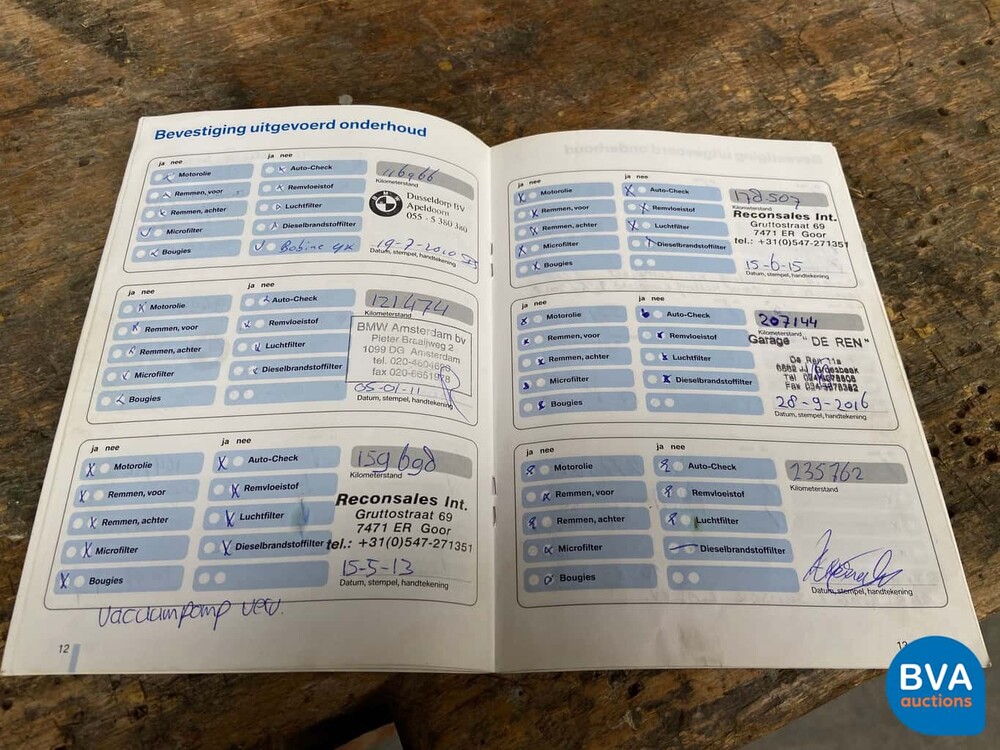 Bevestiging uitgevoerd onderhoud
ja nee
ja nee
Motorolie
Auto-Check
116966
Kilometerstand
Remmen, voor
Remvloeistof
Dusseldorp BV
Apeldoorn
055 - 5 380 380
Remmen, achter
Luchtfilter
Microfilter
Dieselbrandstoffilter
Bougies
Bobine
19-7-2010
Datum, stempel, handtekening
ja nee
ja nee
Motorolie
Auto-Check
121474
Kilometerstand
Remmen, voor
Remvloeistof
BMW Amsterdam bv
Pieter Braaijweg 2
1099 DG Amsterdam
tel. 020-4604628
Remmen, achter
Luchtfilter
Microfilter
Dieselbrandstoffilter
Bougies
05-01-11
Datum, stempel, handtekening
ja nee
ja nee
Motorolie
Auto-Check
159698
Kilometerstand
Remmen, voor
Remvloeistof
Reconsales Int.
Gruttostraat 69
7471 ER Goor
tel.: +31(0)547-271351
Remmen, achter
Luchtfilter
Microfilter
Dieselbrandstoffilter
Bougies
15-5-13
Datum, stempel, handtekening
Vacuumpomp verv.
12
ja nee
ja nee
Motorolie
Auto-Check
178507
Kilometerstand
Remmen, voor
Remvloeistof
Reconsales Int.
Gruttostraat 69
7471 ER Goor
tel.: +31(0)547-271351
Remmen, achter
Luchtfilter
Microfilter
Dieselbrandstoffilter
Bougies
15-6-15
Datum, stempel, handtekening
ja nee
ja nee
Motorolie
Auto-Check
207144
Kilometerstand
Remmen, voor
Remvloeistof
Garage "DE REN"
De Ren 11a
Remmen, achter
Luchtfilter
Microfilter
Dieselbrandstoffilter
Bougies
28-9-2016
Datum, stempel, handtekening
ja nee
ja nee
Motorolie
Auto-Check
235762
Kilometerstand
Remmen, voor
Remvloeistof
Remmen, achter
Luchtfilter
Microfilter
Dieselbrandstoffilter
Bougies
Datum, stempel, handtekening
BVA
auctions